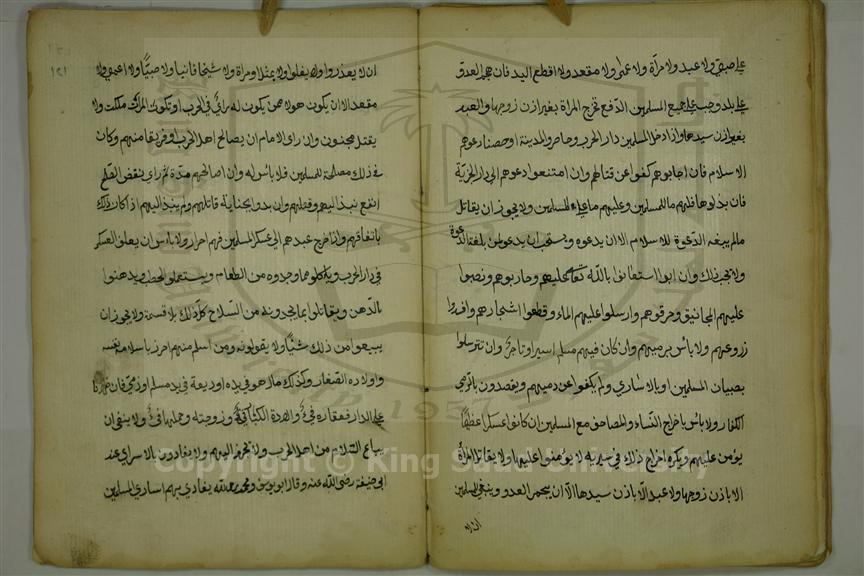 على صبي ولا عبد ولا مرأة ولا عمى ولا مقعد ولا اقطع اليد فان هجم العدو
على بلد وجب على جميع المسلمين الدفع تخرج المرأة بغير اذن زوجها والعبد
بغير اذن سيدها واذا دخل المسلمين دار الحرب وحاصروا لمدينة او حصنا دعوهم
الاسلام فان اجابوهم كفوا عن قتالهم وان امتنعوا دعوهم الى دار الجزية
فان بذلوها فلهم ما للمسلمين وعليهم ما على المسلمين ولا يجوز ان يقاتل
مالم يبغه الدعوة للاسلام الا ان يدعوه ويستحب ان يدعو لمن بلغته الدعوة
ولا يجب ذلك وان ابوا استعانوا بالله تعالى عليهم وحاربوهم ونصبوا
عليهم المجانيق وحرقوهم وارسلوا عليهم الماء وقطعوا اشجارهم وافسدوا
زروعهم ولا باس برميهم وان كان فيهم مسلم اسير او تاجر وان تترسلوا
بصبيان المسلمين او بالاسارى ولم يكفوا عن رميهم ويقصدون بالرمي
الكفار ولا باس باخراج النساء والمصاحف مع المسلمين ان كانوا عسكرا عظيما
يؤمن عليهم ويكره اخراج ذلك في سرية لا يؤمنوا عليها ولا يقاتل المرأة
الا باذن زوجها ولا عبد الا باذن سيدها الا ان يهجم العدو وينبغي للمسلمين
ان لا
ان لا يغدروا ولا يغلوا ولا يمثلوا ومرأة ولا شيخا فانيا ولا صبيا ولا اعمى ولا
مقعد الا ان يكون هولاء ممن يكون له رأي في الحرب او تكون المرأة ملكت ولا
يقتل مجنون وان راى الامام ان يصالح اهل الحرب او فريقا منهم وكان
في ذلك مصلحة للمسلمين فلا باس له وان صالحهم مدة ثم راى بنقض الصلح
انفع نبذ اليهم وقتلهم وان بدو بخيانة قاتلهم ولم ينبذ اليهم اذا كان ذلك
باتفاقهم واذا خرج عبدهم الى عسكر المسلمين فهم احرار ولا باس ان يعلف العسكر
في دار الحرب وياكلو مما وجدوه من الطعام ويستعملوا الحطب ويدهنوا
بالدهن ويقاتلوا بما يجدونه من السلاح كل ذلك بلا قسمة ولا يجوز ان
يبيعوا من ذلك شيئا ولا يقولونه ومن اسلم منهم احرز باسلامه نفسه
واولاده الصغار وكذلك ماله هو في يده او ديعة في يد مسلم او ذمي فان ظهرنا
على الدار فعقاره فئ واولاده الكبار فئ وزوجته وحملها فئ ولا ينبغي ان
يباع السلام من اهل الحرب ولا تجهز اليهم ولا يفادون بالاسراى عند
ابي حنيفة رضى الله عنه وقال ابو يوسف ومحمد رحمه الله يفادي بهم اسارى المسلمين
Copyright © King Saud University
1957